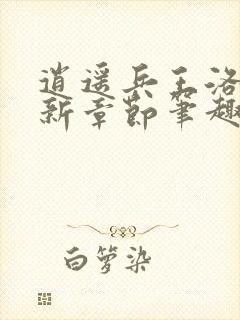 逍遥兵王洛
新章节笔趣
白萝染